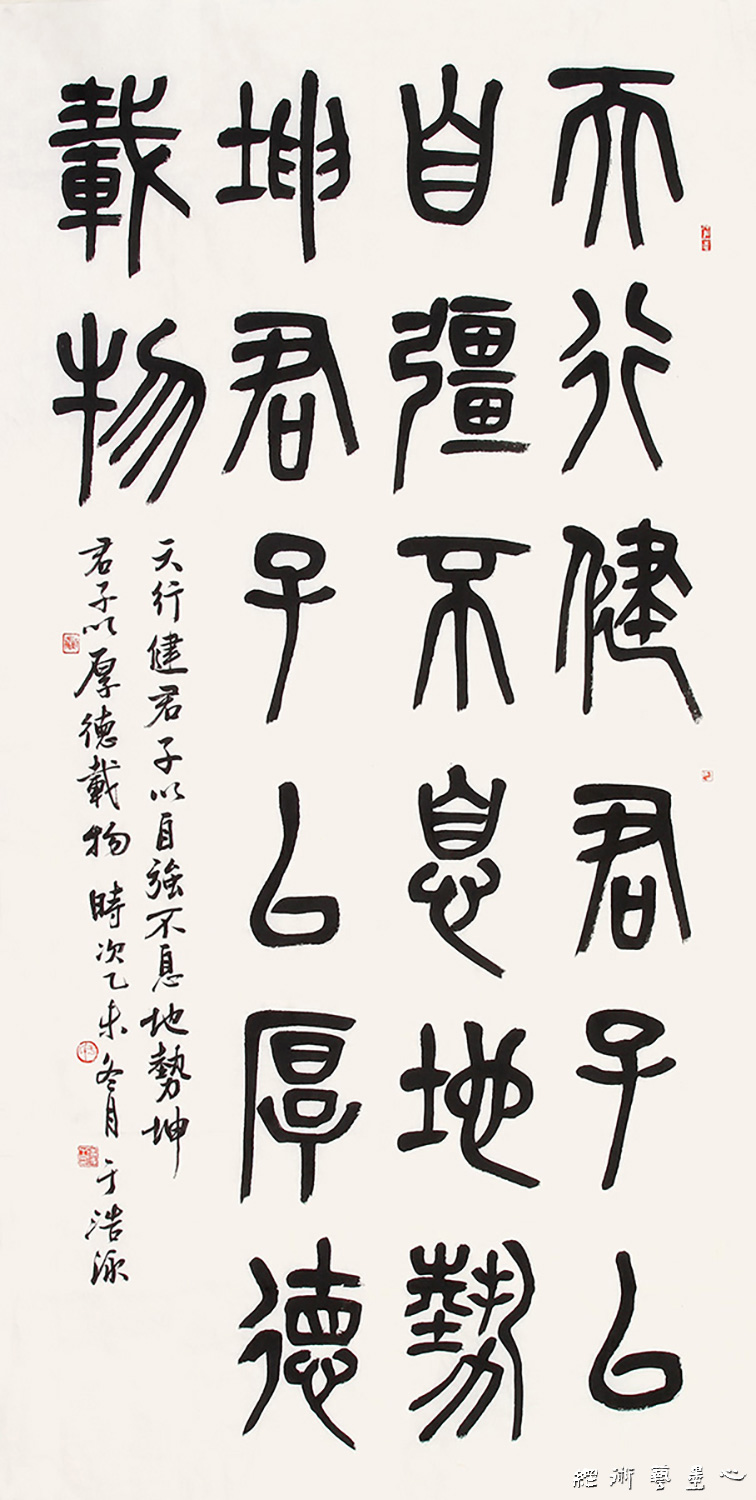 天行健君子以
自彊不息地勢
坤君子以厚德
載物
天行健君子以自強不息地勢坤
君子以厚德載物 時次乙未冬月 于浩源
藝術